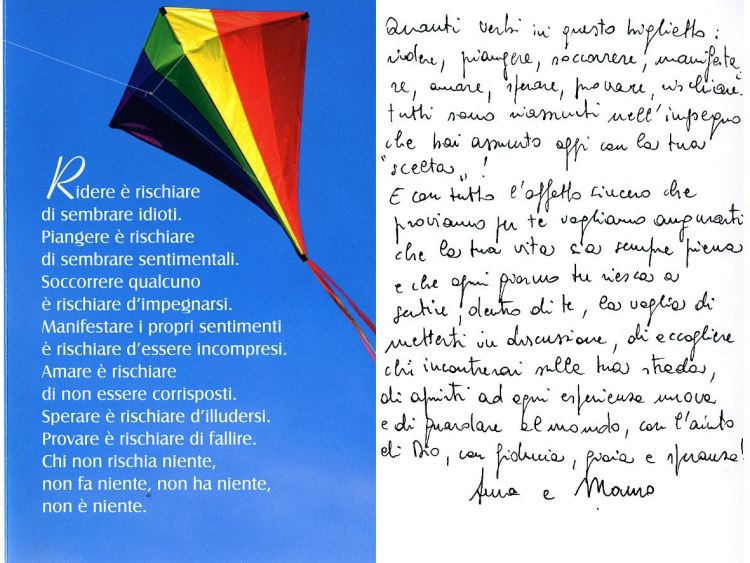 Ridere è rischiare
di sembrare idioti.
Piangere è rischiare
di sembrare sentimentali.
Soccorrere qualcuno
è rischiare d'impegnarsi.
Manifestare i propri sentimenti
è rischiare d'essere incompresi.
Amare è rischiare
di non essere corrisposti.
Sperare è rischiare d'illudersi.
Provare è rischiare di fallire.
Chi non rischia niente,
non fa niente, non ha niente,
non è niente.
Quanti verbi in questo biglietto:
ridere, piangere, soccorrere, manifesta
re, amare, sperare, provare, rischiare.
tutti sono riassunti nell'impegno
che hai assunto oggi con la tua
"scelta"!
E con tutto l'affetto sincero che
proviamo per te vogliamo augurarti
che la tua vita sia sempre piena
e che ogni giorno tu riesca a
sentire, dentro di te, la voglia di
metterti in discussione, di accogliere
chi incontrerai sulla tua strada,
di aprirti ad ogni esperienza nuova
e di guardare al mondo, con l'aiuto
di Dio, con fiducia, gioia e speranza!
Anna e Mauro